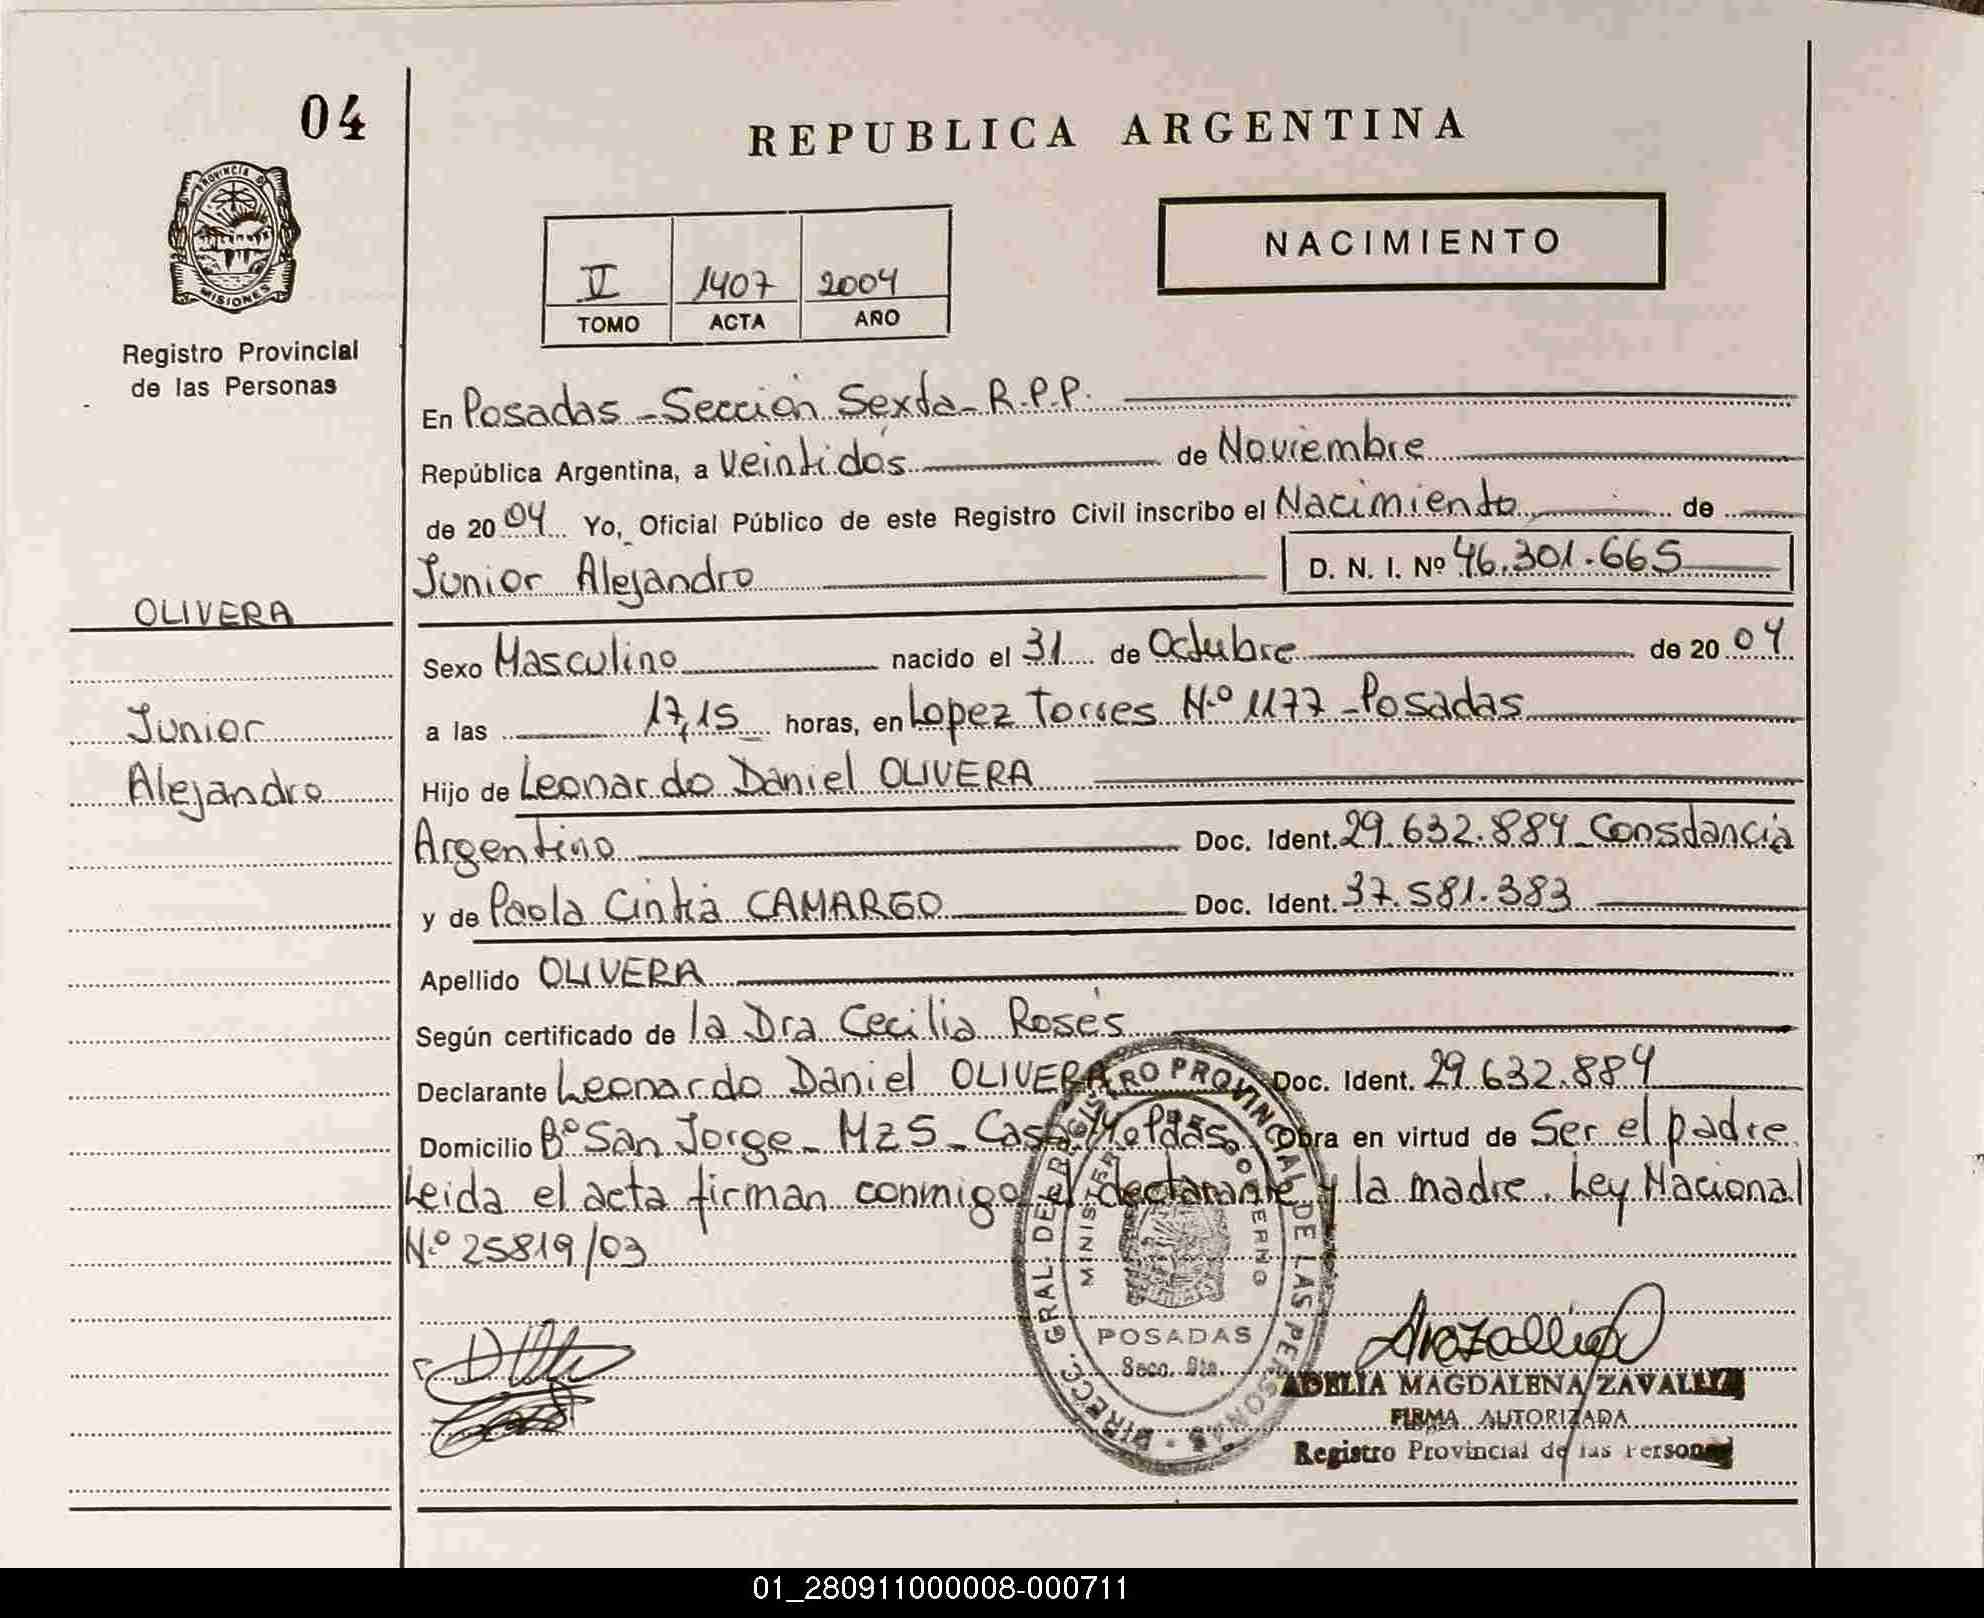 04
REPUBLICA ARGENTINA
PROVINCIA DE
MISIONES
Registro Provincial
de las Personas
V 1407 2004
TOMO ACTA AÑO
NACIMIENTO
En Posadas - Sección Sexta - R.P.P.
República Argentina, a Veintidós de Noviembre
de 2004 Yo, Oficial Público de este Registro Civil inscribo el Nacimiento de
Junior Alejandro D. N. I. Nº 46.301.665
OLIVERA
Junior
Alejandro
Sexo Masculino nacido el 31 de Octubre de 2004
a las 17,15 horas, en Lopez Torres N.º 1177 - Posadas
Hijo de Leonardo Daniel OLIVERA
Argentino Doc. Ident. 29.632.884 - Constancia
y de Paola Cintia CAMARGO Doc. Ident. 37.581.383
Apellido OLIVERA
Según certificado de la Dra Cecilia Rosés
Declarante Leonardo Daniel OLIVERA Doc. Ident. 29.632.884
Domicilio Bº San Jorge - Mz5 - Casa Obra en virtud de Ser el padre
Leida el acta firman conmigo el declarante y la madre. Ley Nacional
N.º 25819/03
DIREC. GRAL. DEL REGISTRO PROVINCIAL DE LAS PERSONAS
MINISTERIO GOBIERNO
POSADAS
Secc. 6ta.
ADELIA MAGDALENA ZAVALLA
FIRMA AUTORIZADA
Registro Provincial de las Personas
01_280911000008-000711